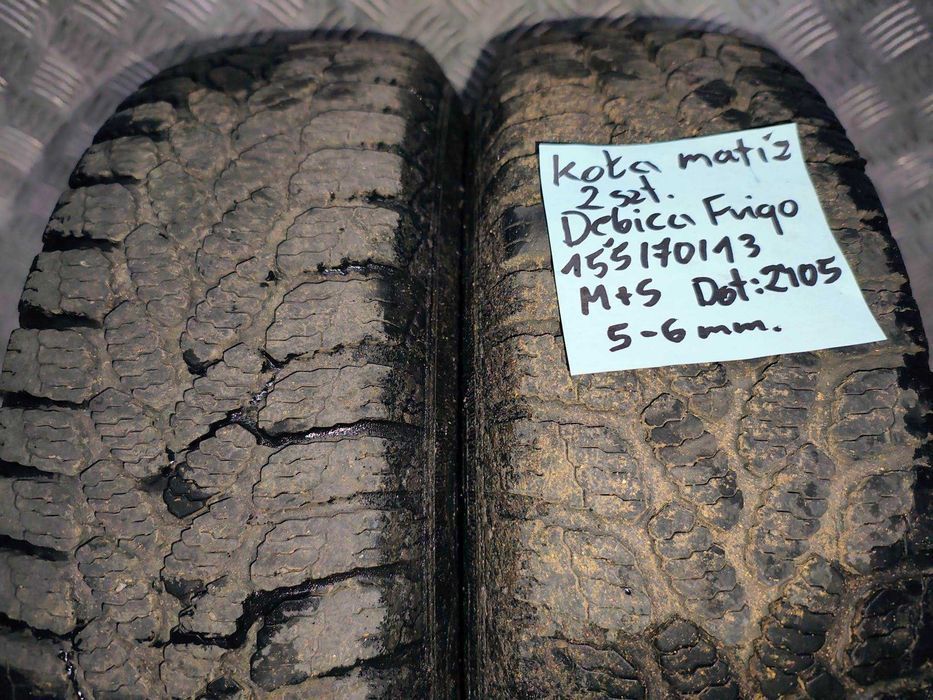 Koła matiz
2 szt.
Dębica Frigo
155/70/13
M+S Dot:2105
5-6 mm.